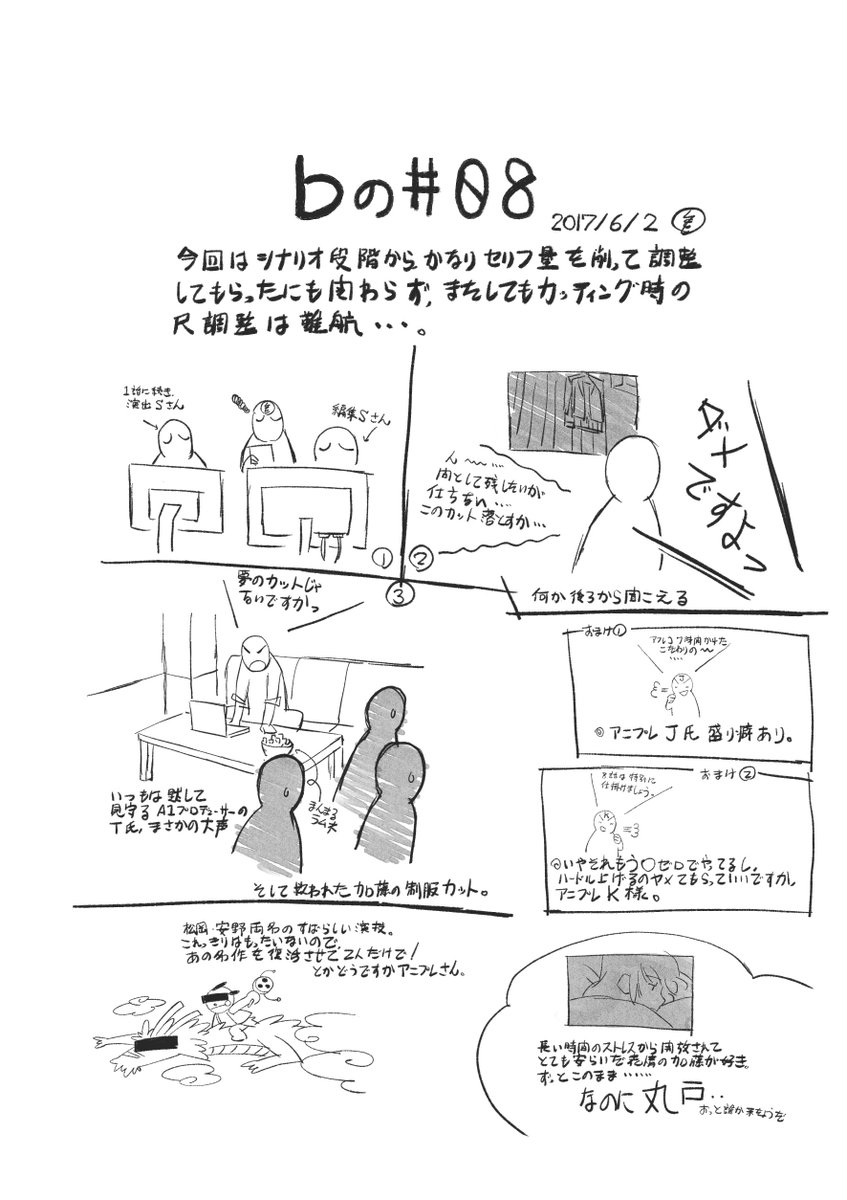 bの#08
2017/6/2
今回はシナリオ段階からかなりセリフ量を削って調整
してもらったにも関わらず、またしてもカッティング時の
尺調整は難航・・・。
1話に続き
演出Sさん
編集Sさん
①
ん〜〜…
間として残したいが
仕方ない…
このカット落とすか…
ダメ
ですよっ
②
何か後ろから聞こえる
③
夢のカットじゃ
ないですかっ
いつもは黙して
見守るA1プロデューサーの
T氏、まさかの大声
まんまる
ラムネ
そして救われた加藤の制服カット。
おまけ①
アフレコ7時間かけた
こだわりの〜〜
‥‥
◎アニプレJ氏盛り癖あり。
おまけ②
8話は特別に
仕掛けましょう。
◎いやそれもう○ゼロでやってるし、
ハードル上げるのヤメてもらっていいですか、
アニプレK様。
松岡・安野両名のすばらしい演技。
これっきりはもったいないので、
あの名作を復活させてくんだけで!
とかどうですかアニプレさん。
長い時間のストレスから開放されて
とても安らいだ表情の加藤が好き。
ずっとこのまま……
なのに丸戸‥
おっと誰か来たようだ